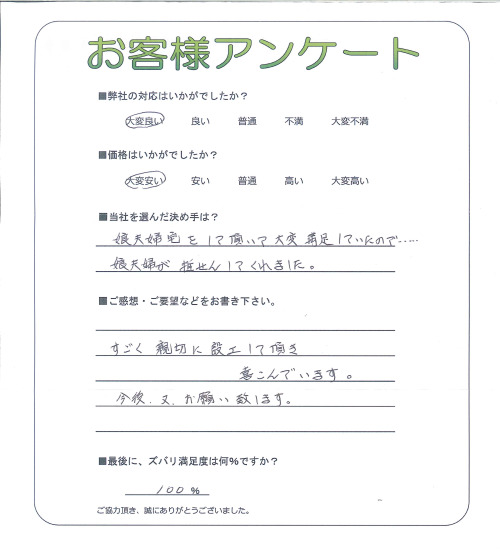 お客様アンケート
■弊社の対応はいかがでしたか？
大変良い 良い 普通 不満 大変不満
■価格はいかがでしたか？
大変安い 安い 普通 高い 大変高い
■当社を選んだ決め手は？
娘夫婦宅をして頂いて大変満足していたので……
娘夫婦が推せんしてくれました。
■ご感想・ご要望などをお書き下さい。
すごく親切に設工して頂き
喜こんでいます。
今後、又、お願い致します。
■最後に、ズバリ満足度は何%ですか？
100%
ご協力頂き、誠にありがとうございました。